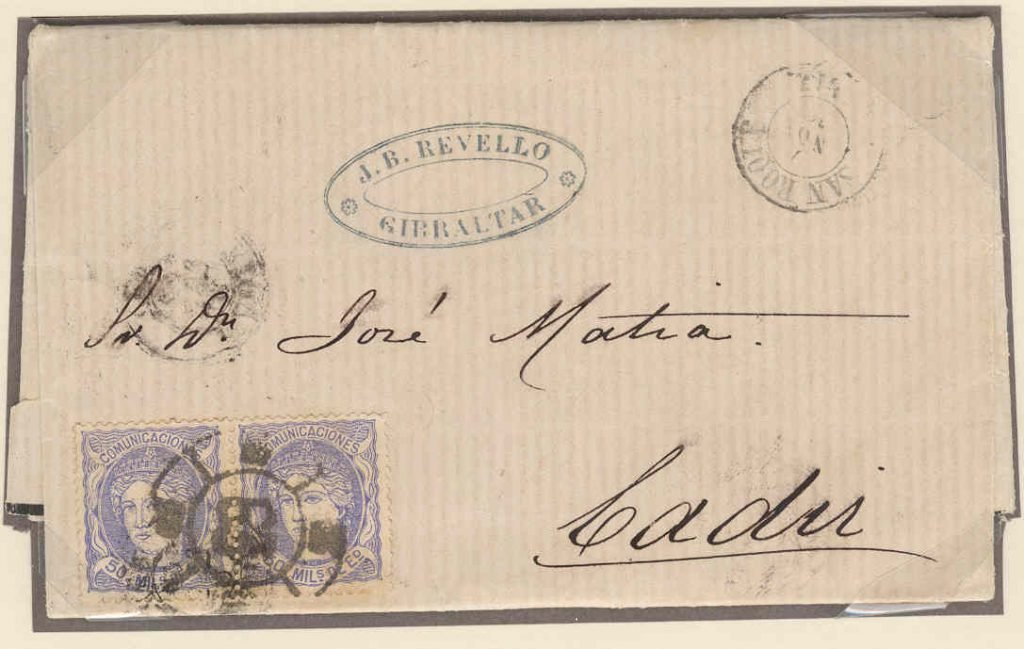 J. B. REVELLO
GIBRALTAR
SAN ROQUE
Sr. Dn. José Matia.
Cadiz
COMUNICACIONES
COMUNICACIONES
50 MILS DE EO